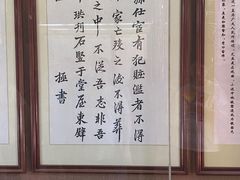 孫仕宦有犯賍濫者不得
家亡歿之後不得葬
之中不從吾志非吾
珙刊石竪于堂屋東壁
拯書